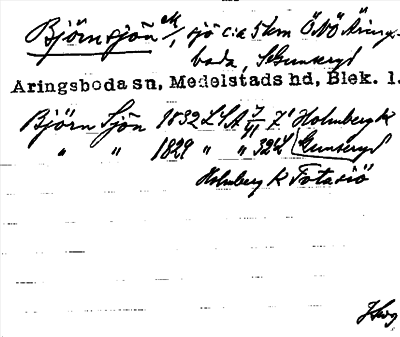 Björnsjön ek/, sjö c:a 5 km ÖNÖ Åring-
boda, S Gunseryd
Aringsboda sn, Medelstads hd, Blek. l.
Björn Sjön 1832 LSA 7/41 Z1 Holmberg K
" " 1829 " " 32 Gunseryd
Holmberg K